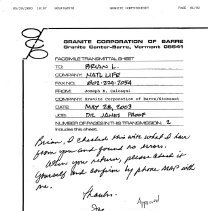 GRANITE CORPORATION OF BARRE
Granite Center-Barre, Vermont 05641
FACSIMILE TRANSMITTAL SHEET
TO: BRIAN L.
COMPANY: NAT'L LIFE
FAX: 802-229-7054
FROM: Joseph R. Calcagni
COMPANY: Granite Corporation of Barre/Richmount
DATE: MAY 28, 2003
JOB: DR. JONES PROOF
NUMBER OF PAGES IN THIS TRANSMISSION: 2
Includes this sheet.
Brian, I checked this with what I have
from you and found no errors.
When you return, please check it
yourself and confirm by phone ASAP with
me.
Thanks.
Joe
Approved